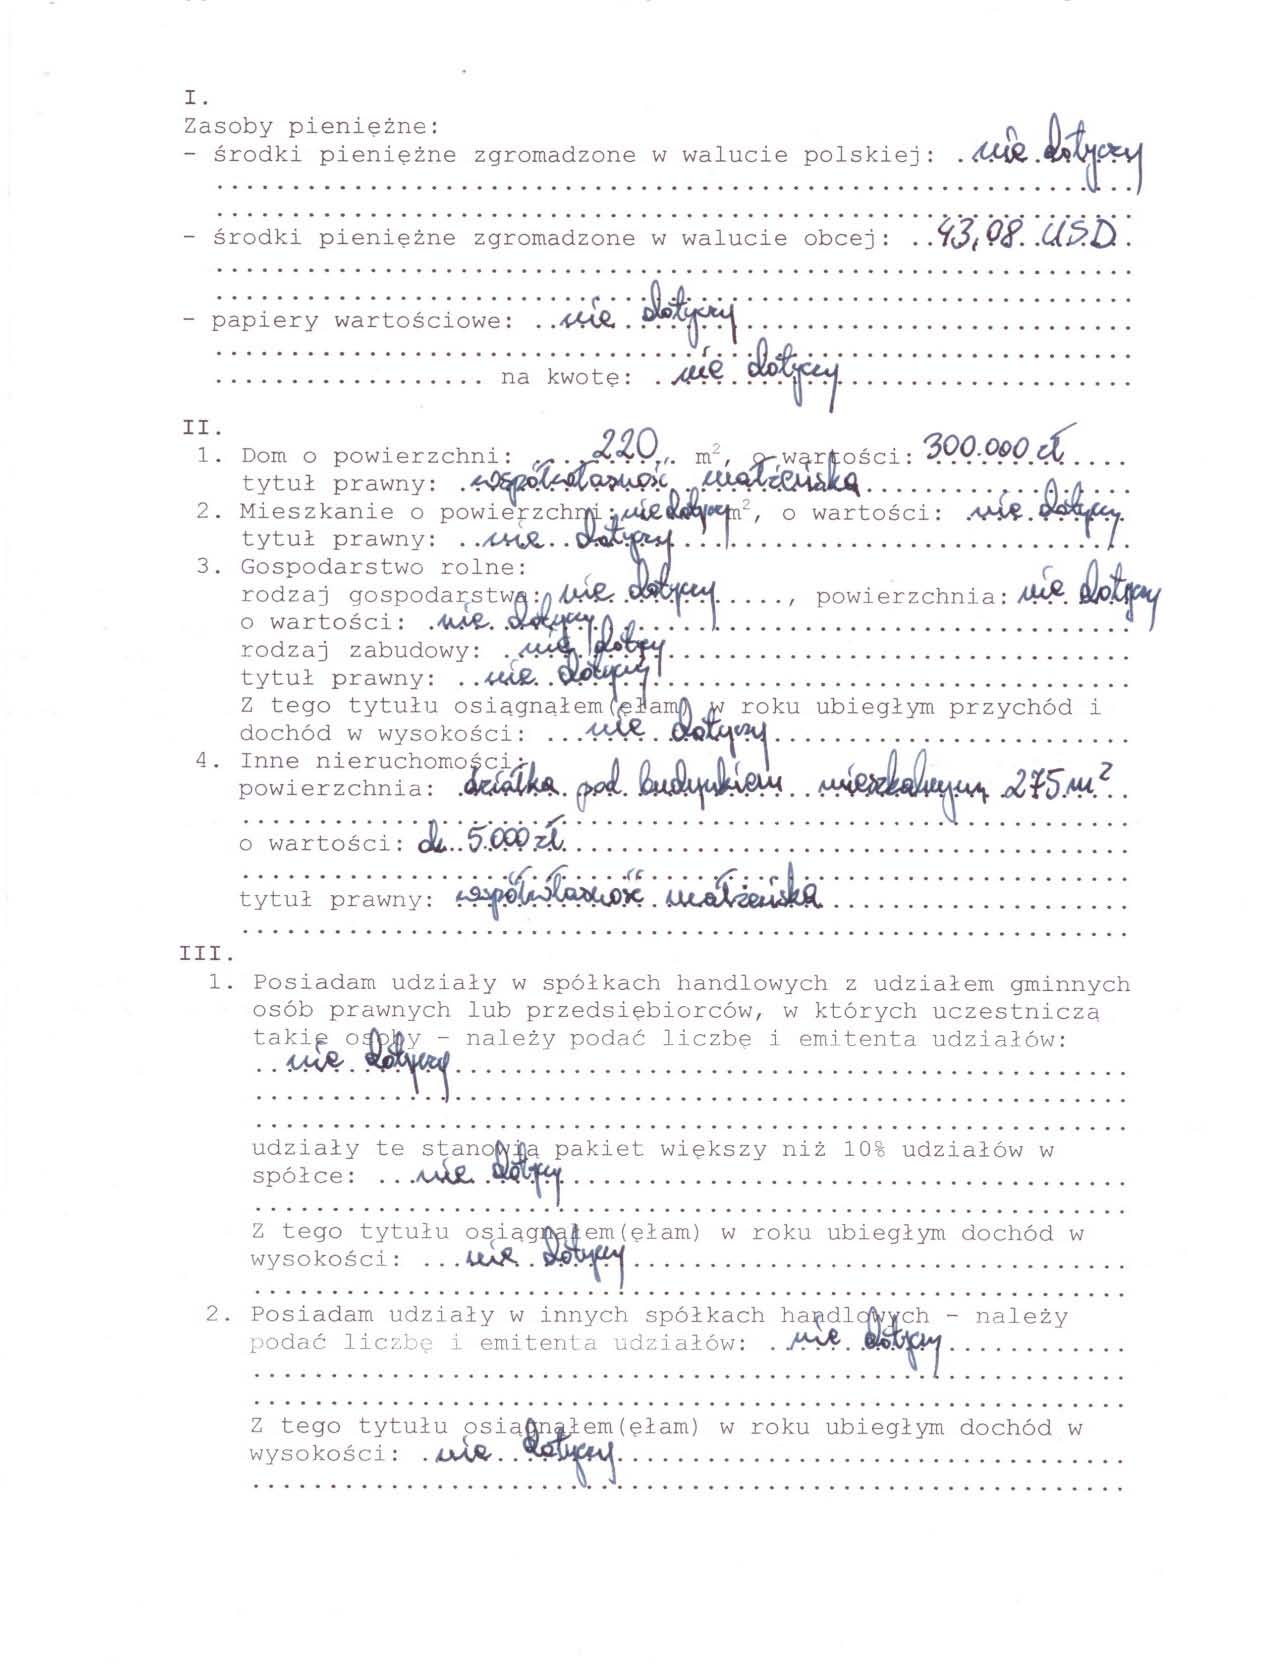 I.
Zasoby pieniężne:
- środki pieniężne zgromadzone w walucie polskiej: . nie dotyczy
- środki pieniężne zgromadzone w walucie obcej: ..43,08 USD.
- papiery wartościowe: ..nie dotyczy
.................. na kwotę: . nie dotyczy
II.
1. Dom o powierzchni: 220 m², o wartości: 300.000 zł
tytuł prawny: współwłasność małżeńska
2. Mieszkanie o powierzchni: nie dotyczy m², o wartości: nie dotyczy
tytuł prawny: nie dotyczy
3. Gospodarstwo rolne:
rodzaj gospodarstwa: nie dotyczy ....., powierzchnia: nie dotyczy
o wartości: nie dotyczy
rodzaj zabudowy: nie dotyczy
tytuł prawny: nie dotyczy
Z tego tytułu osiągnąłem(ęłam) w roku ubiegłym przychód i
dochód w wysokości: nie dotyczy
4. Inne nieruchomości:
powierzchnia: działka pod budynkiem mieszkalnym 275 m²
o wartości: 5.000 zł
tytuł prawny: współwłasność małżeńska
III.
1. Posiadam udziały w spółkach handlowych z udziałem gminnych
osób prawnych lub przedsiębiorców, w których uczestniczą
takie osoby - należy podać liczbę i emitenta udziałów:
nie dotyczy
udziały te stanowią pakiet większy niż 10% udziałów w
spółce: nie dotyczy
Z tego tytułu osiągnąłem(ęłam) w roku ubiegłym dochód w
wysokości: nie dotyczy
2. Posiadam udziały w innych spółkach handlowych - należy
podać liczbę i emitenta udziałów: nie dotyczy
Z tego tytułu osiągnąłem(ęłam) w roku ubiegłym dochód w
wysokości: nie dotyczy